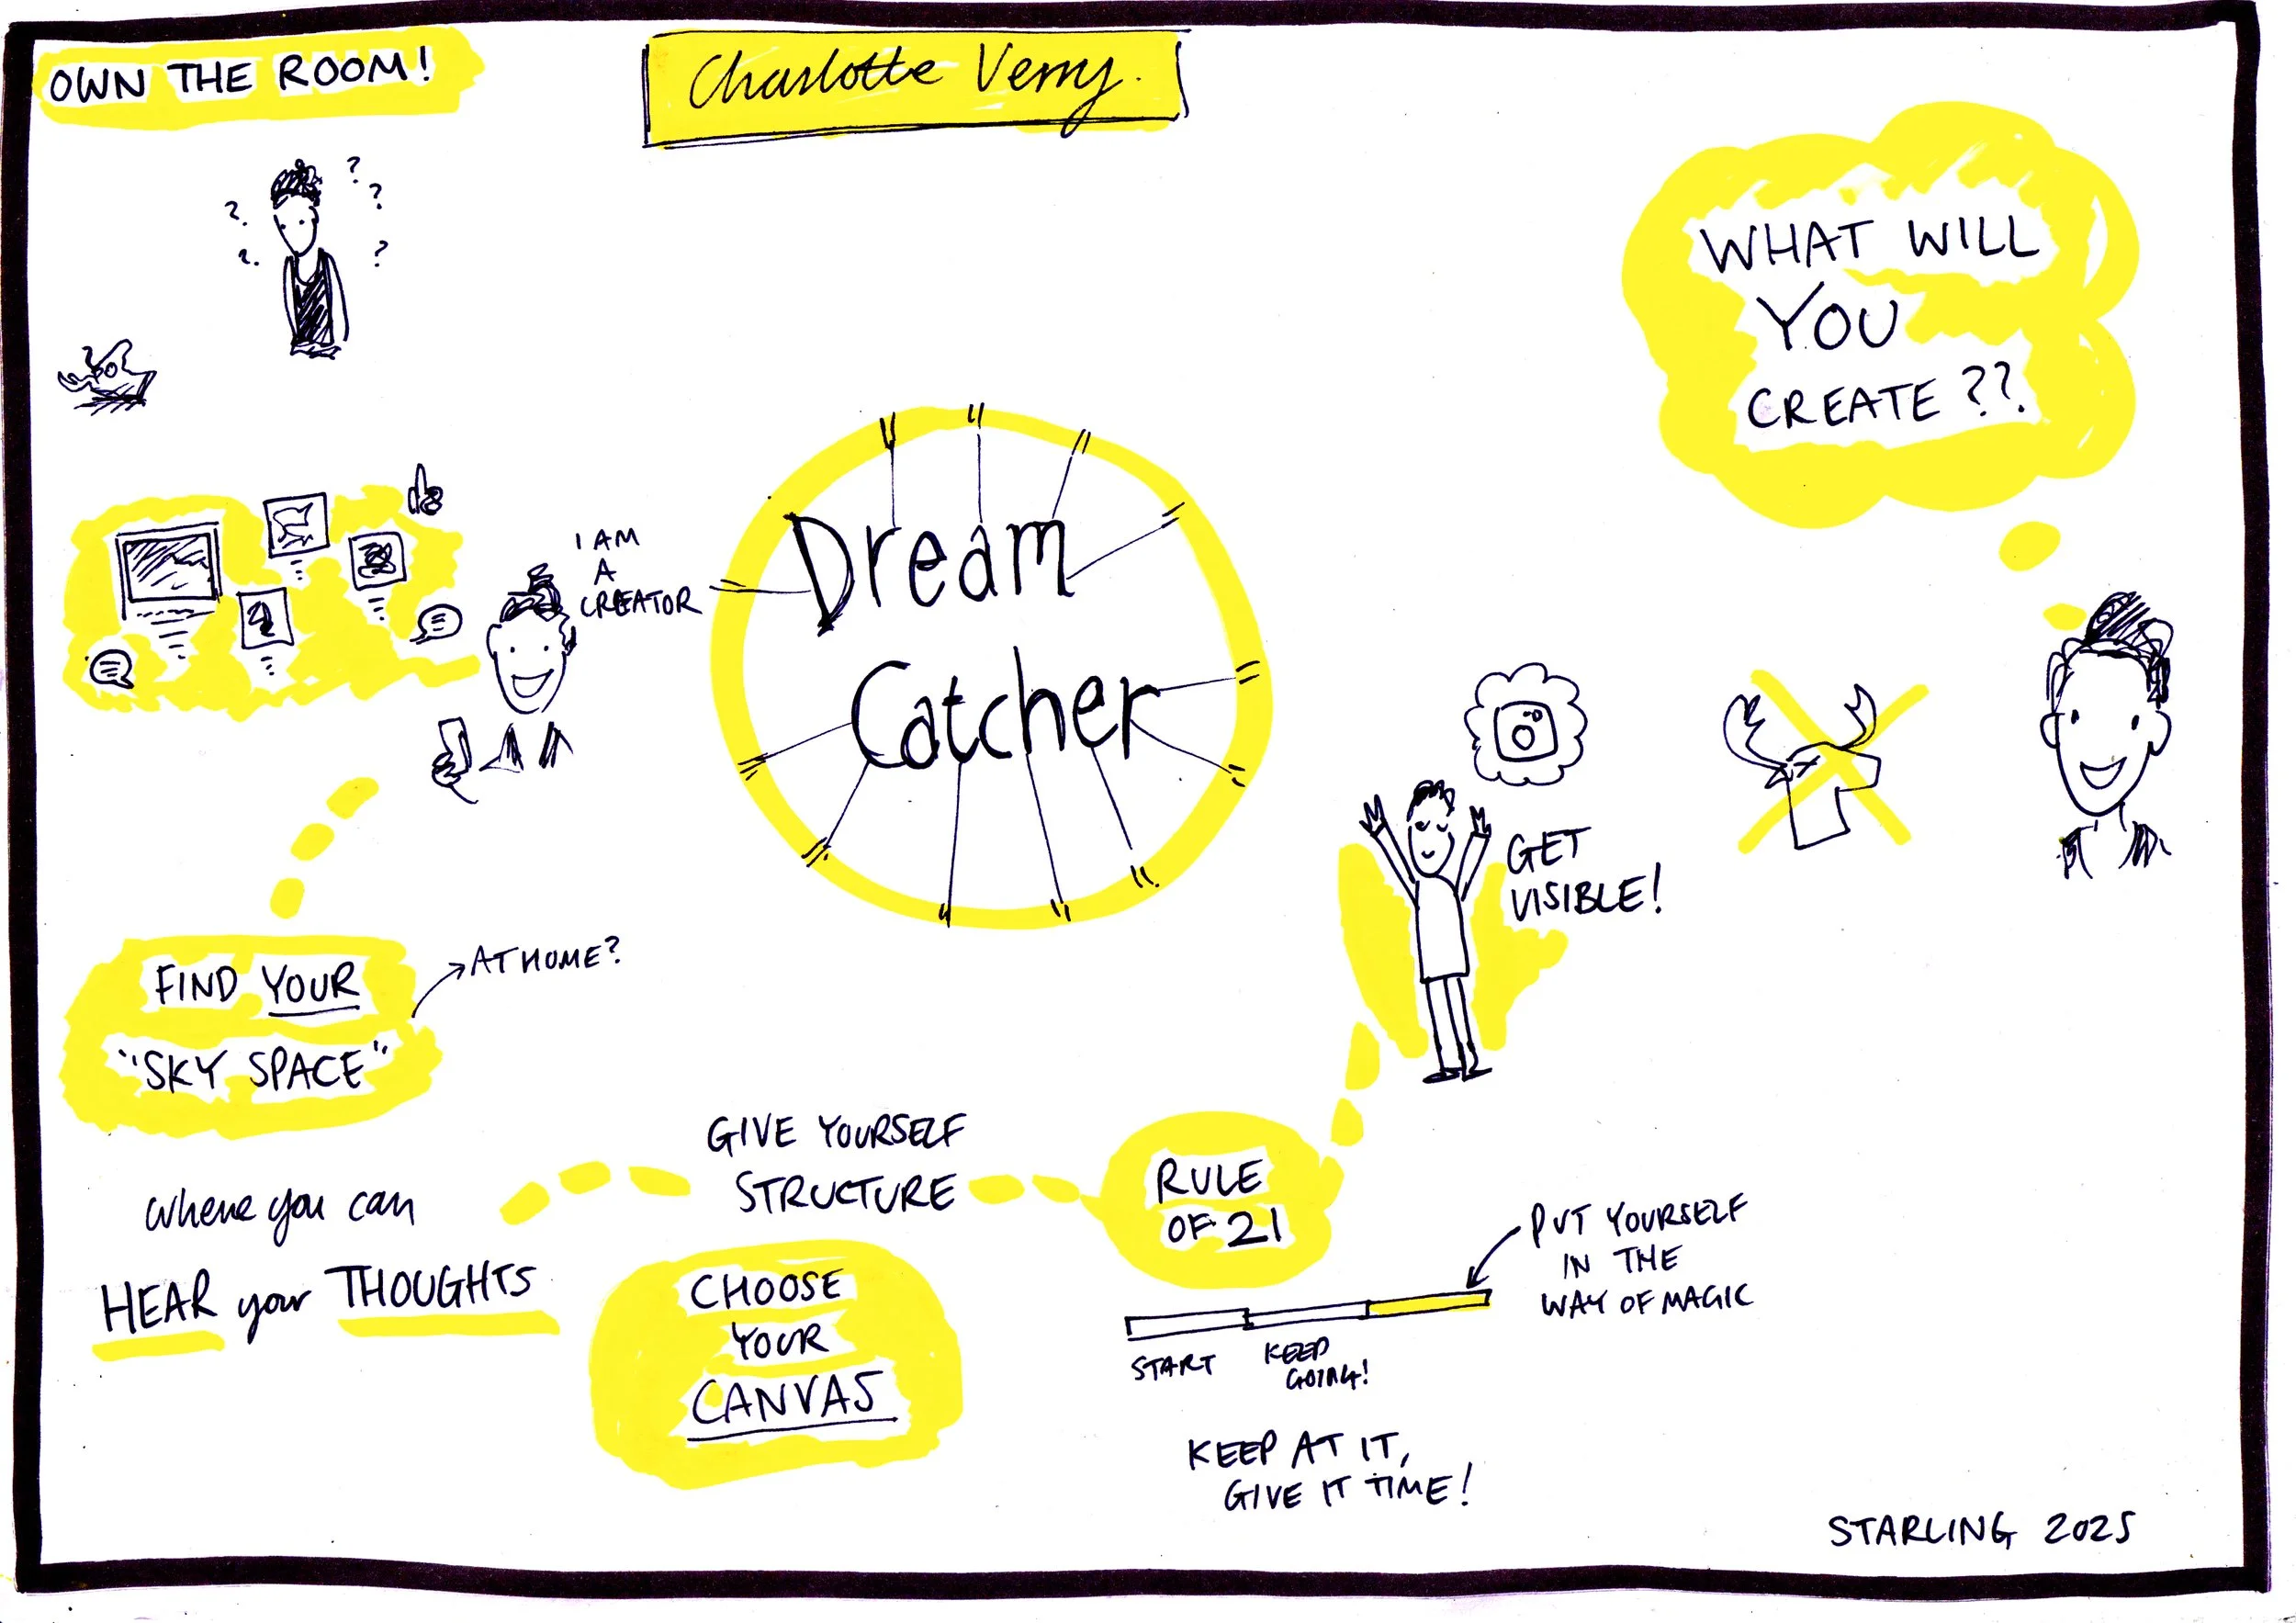 OWN THE ROOM!
Charlotte Verry.
? ? ? ? ?
WHAT WILL
YOU
CREATE??.
I AM
A
CREATOR
Dream
Catcher
GET
VISIBLE!
FIND YOUR
"SKY SPACE"
AT HOME?
where you can
HEAR your THOUGHTS
GIVE YOURSELF
STRUCTURE
CHOOSE
YOUR
CANVAS
RULE
OF 21
PUT YOURSELF
IN THE
WAY OF MAGIC
START
KEEP
GOING!
KEEP AT IT,
GIVE IT TIME!
STARLING 2025